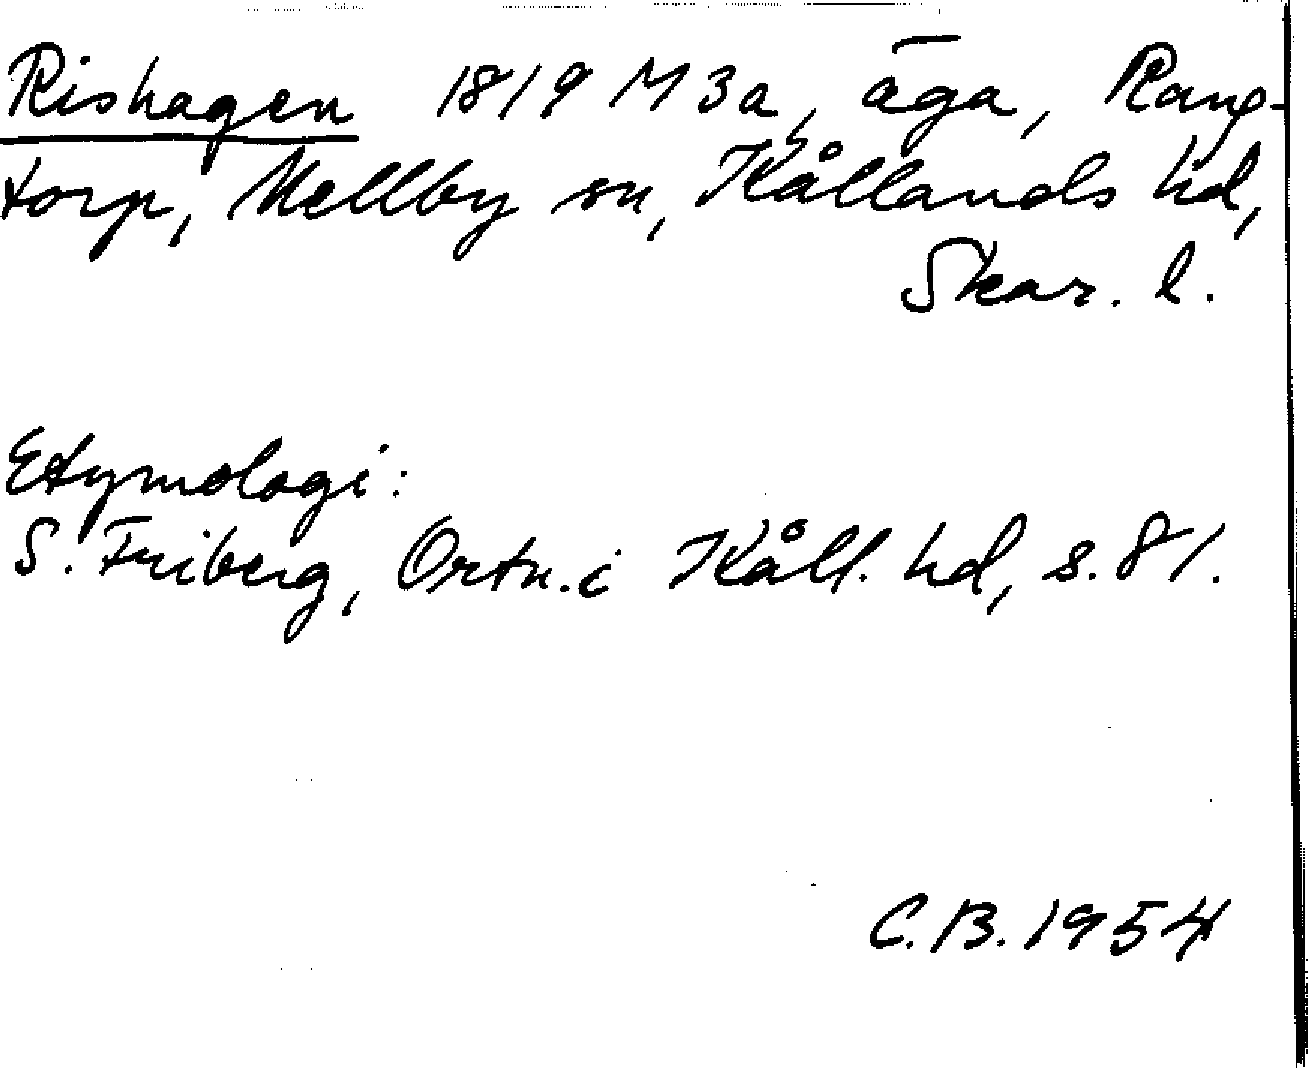 Rishagen 1819 M 3a, äga, Rang-
torp, Mellby sn, Kållands hd,
Skar. l.
Etymologi:
S. Friberg, Ortn. i Kåll. hd, s. 81.
C.B. 1954